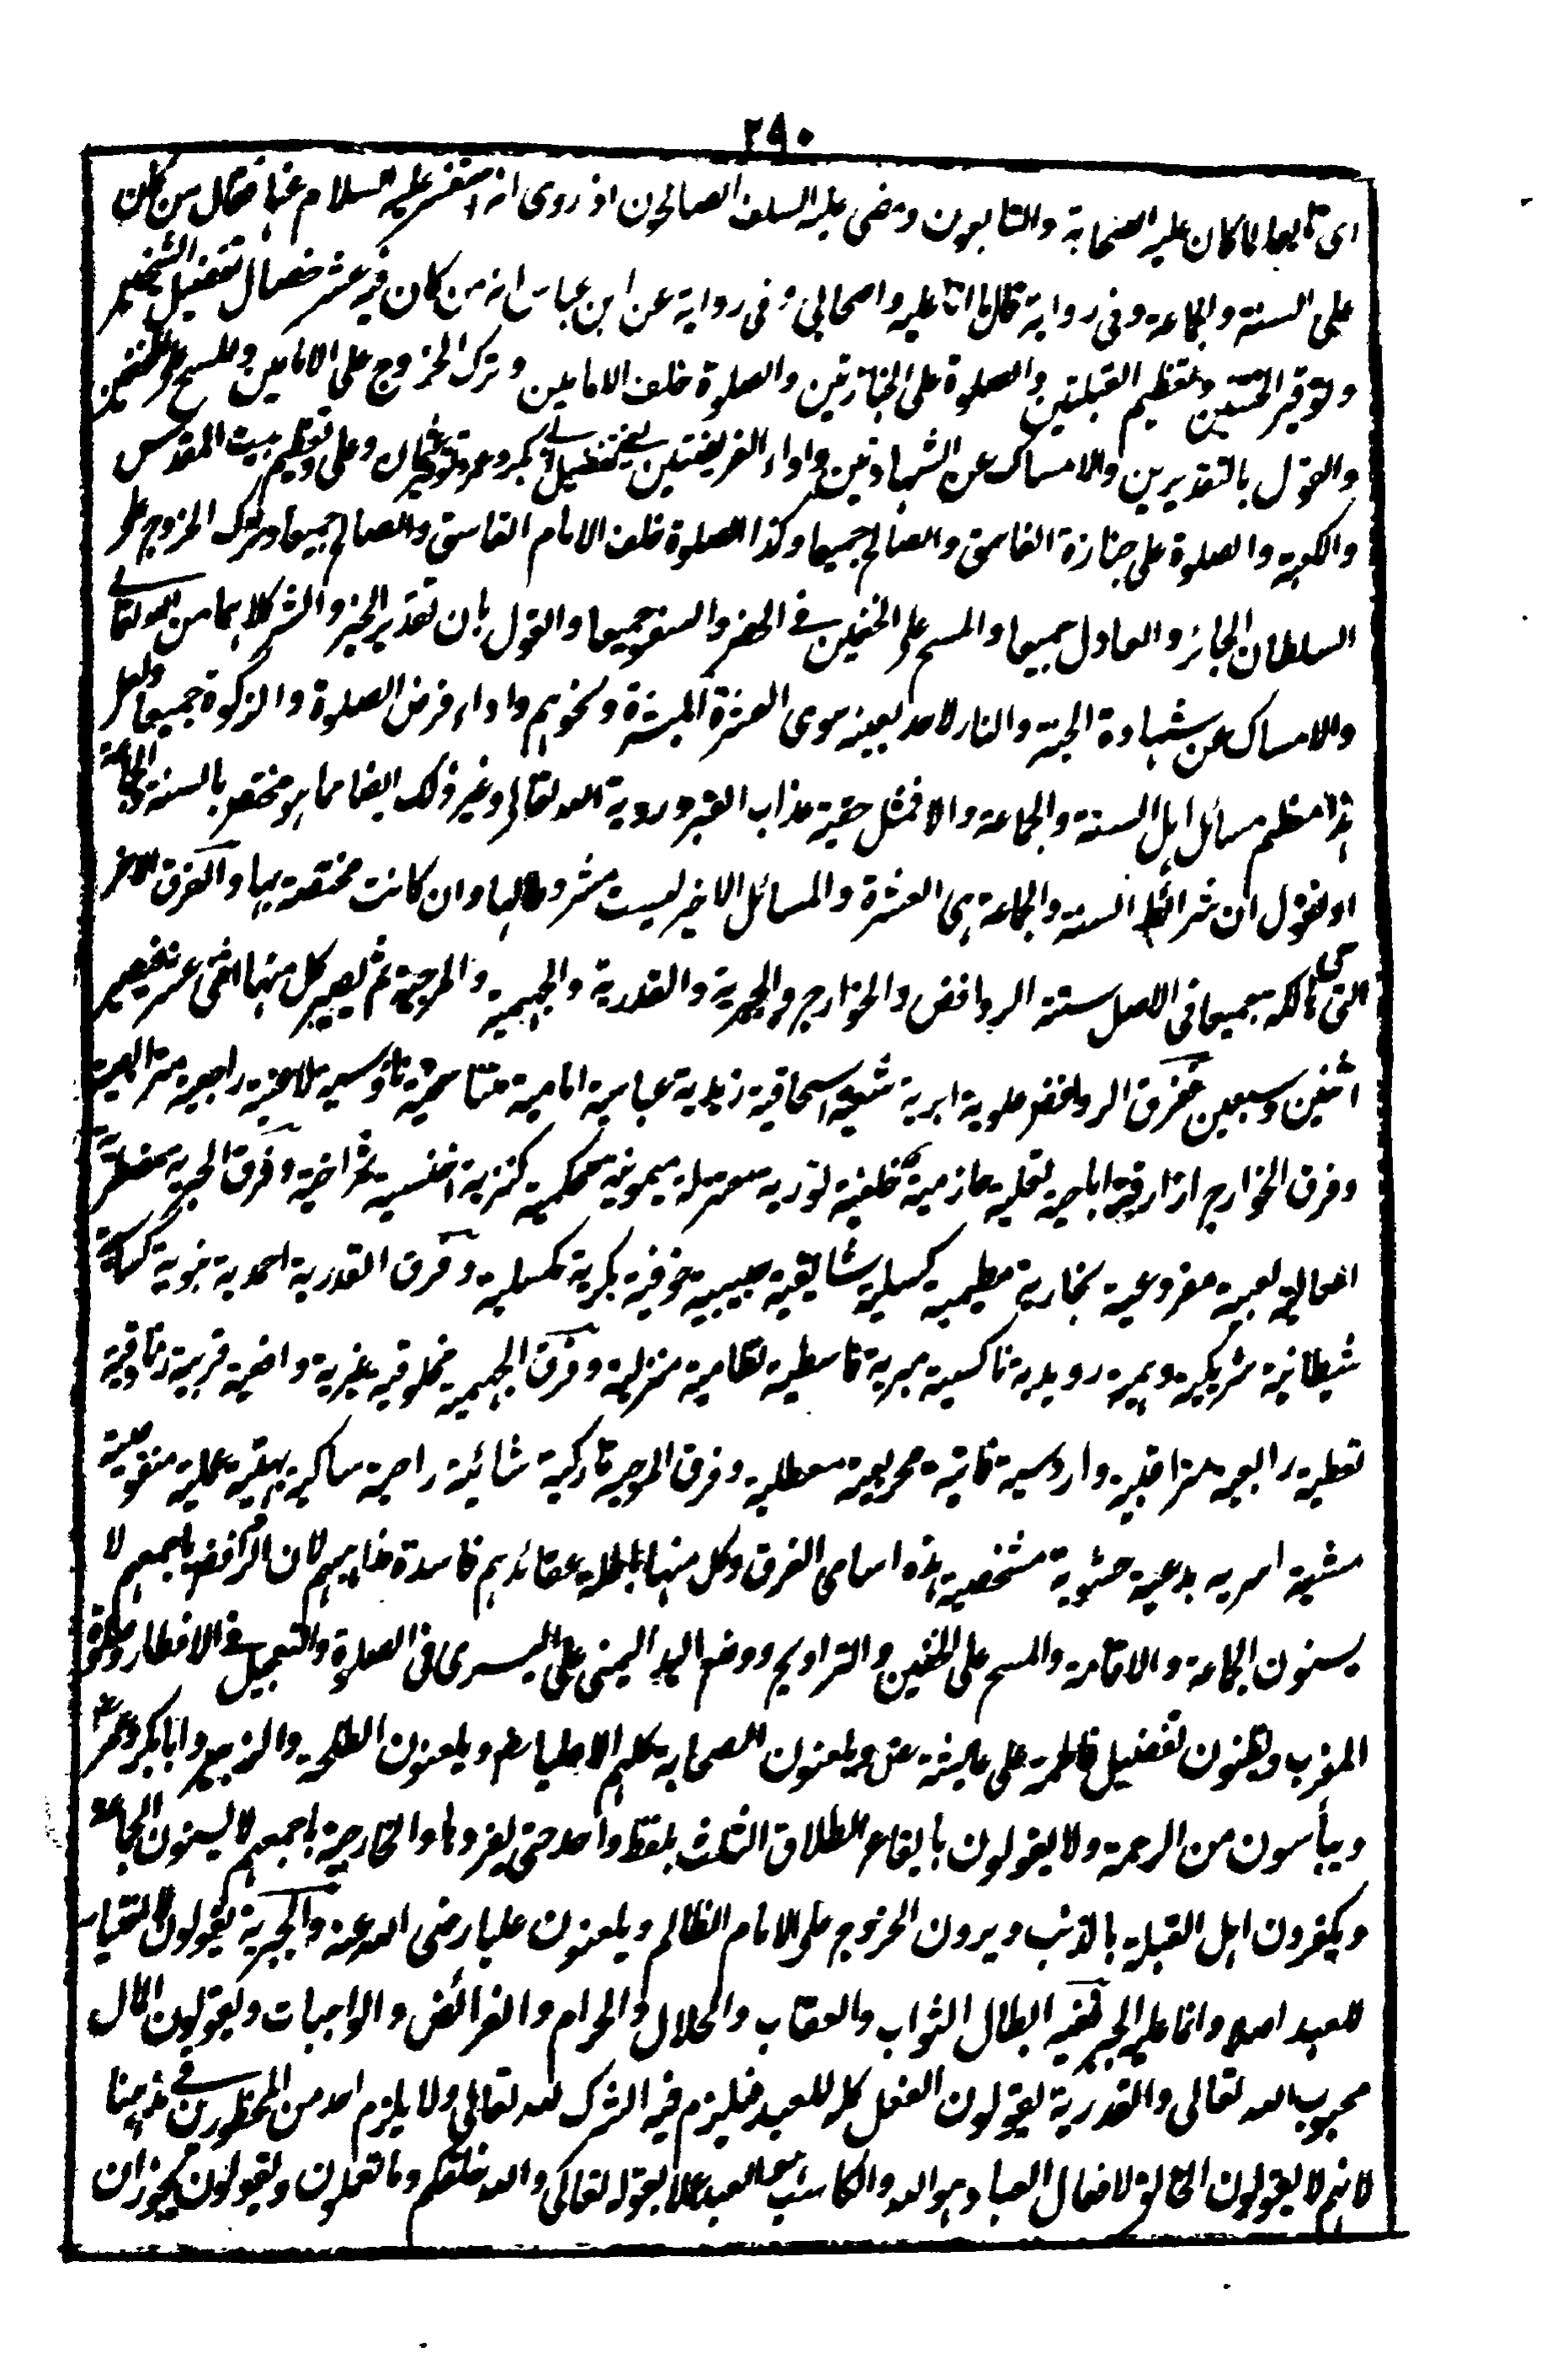 ٢٩٠
اى تابعا لما كان عليه الصحابة والتابعون ومضى عليه السلف الصالحون اذ روى انه استفسر عليه السلام عنها فقال من كان
على السنة والجماعة وفى رواية قال ما انا عليه واصحابى وفى رواية عن ابن عباس انه من كان فيه عشر خصال تفضيل الشيخين
وتوقير الختنين وتعظيم القبلتين والصلوة على الجنازتين والصلوة خلف الامامين وترك الخروج على الامامين والمسح على الخفين
والقول بالتقديرين والامساك عن الشهادتين واداء الفريضتين يعنى تفضيل ابى بكر وعمر وتوقير عثمان وعلى وتعظيم بيت المقدس
والكعبة والصلوة على جنازة الفاسق والصالح جميعا وكذا الصلوة خلف الامام الفاسق والصالح جميعا وترك الخروج على
السلطان الجائر والعادل جميعا والمسح على الخفين فى الحضر والسفر جميعا والقول بان تقدير الخير والشر كلاهما من الله تعالى
والامساك عن شهادة الجنة والنار لاحد بعينه سوى العشرة المبشرة ونحوهم واداء فرض الصلوة والزكوة جميعا ولعل
هذا معظم مسائل اهل السنة والجماعة والا فمثل حقية عذاب القبر وروية الله تعالى وغير ذلك ايضا مما هو مختص بالسنة والجماعة
او نقول ان شرائط السنة والجماعة هى العشرة والمسائل الاخر ليست مشروطا لها وان كانت مختصة بها والفرق الاخر
التى هى هالكة جميعا فى الاصل ستة الروافض والخوارج والجبرية والقدرية والجهمية والمرجية ثم يصير كل منها اثنى عشر فيصير
اثنين وسبعين ففرق الروافض علوية ابرية شيعية اسحاقية زيدية عباسية امامية متناسخية ناؤسية لاعنية راجعية مترابصية
وفرق الخوارج ازارقية اباحية ثعلبية حازمية خلفية لوزية معتزلة ميمونية محكمية كنزية اخنسية شراخية وفرق الجبرية مضطرية
افعالية لعبية مفروعية نجارية مطيمية كسلية شايقية حبيبية خوفية بكرية كمسلية وفرق القدرية احمدية نبوية كسائية
شيطانية شريكية وهمية رويدية ناكسية مبرية قاسطية نظامية منزلية وفرق الجهمية مخلوقية غيرية واضية قربية زنادقية
لفظية رابعية متراقبية واردسية فانية محرقية معطلية وفرق المرجية تاركية شائية راجية ساكية بهتية عملية منقوصية
مشية امرية بدعية حشوية مشخصية هذه اسامى الفرق وكل منها باطلة عقائدهم فاسدة مذاهبهم لان الروافض باجمعهم لا
يسنون الجماعة والاقامة والمسح على الخفين والتراويح ووضع اليد اليمنى على اليسرى فى الصلوة والتعجيل فى الافطار وصلوة
المغرب ويظنون تفضيل فاطمة على عايشة رض ويلعنون الصحابة كلهم الا عليا رض ويلعنون الطلحة والزبير وابا بكر وعمر رض
وييأسون من الرحمة ولا يقولون بايقاع الطلاق الثلث بلفظ واحد حتى يفرد ها والخارجية باجمعهم لا يسنون الجماعة
ويكفرون اهل القبلة بالذنب ويرون الخروج على الامام الظالم ويلعنون عليا رضى الله عنه والجبرية يقولون لا اختيار
للعبد اصلا وانما عليه الجبر ففيه ابطال الثواب والعقاب والحلال والحرام والفرائض والواجبات ويقولون المال
محبوب الله تعالى والقدرية يقولون الفعل كله للعبد فيلزم فيه الشرك لله تعالى ولا يلزم احد من المحظورين فى مذهبنا
لانهم لا يقولون الخالق لافعال العباد هو الله والكاسب هو العبد عملا بقوله تعالى والله خلقكم وما تعملون ويقولون يجوز ان